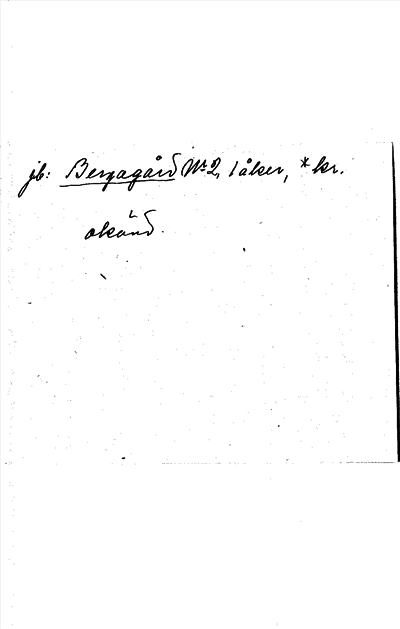 jb: Bergagård № 2, 1 åker, * kr.
okänd.